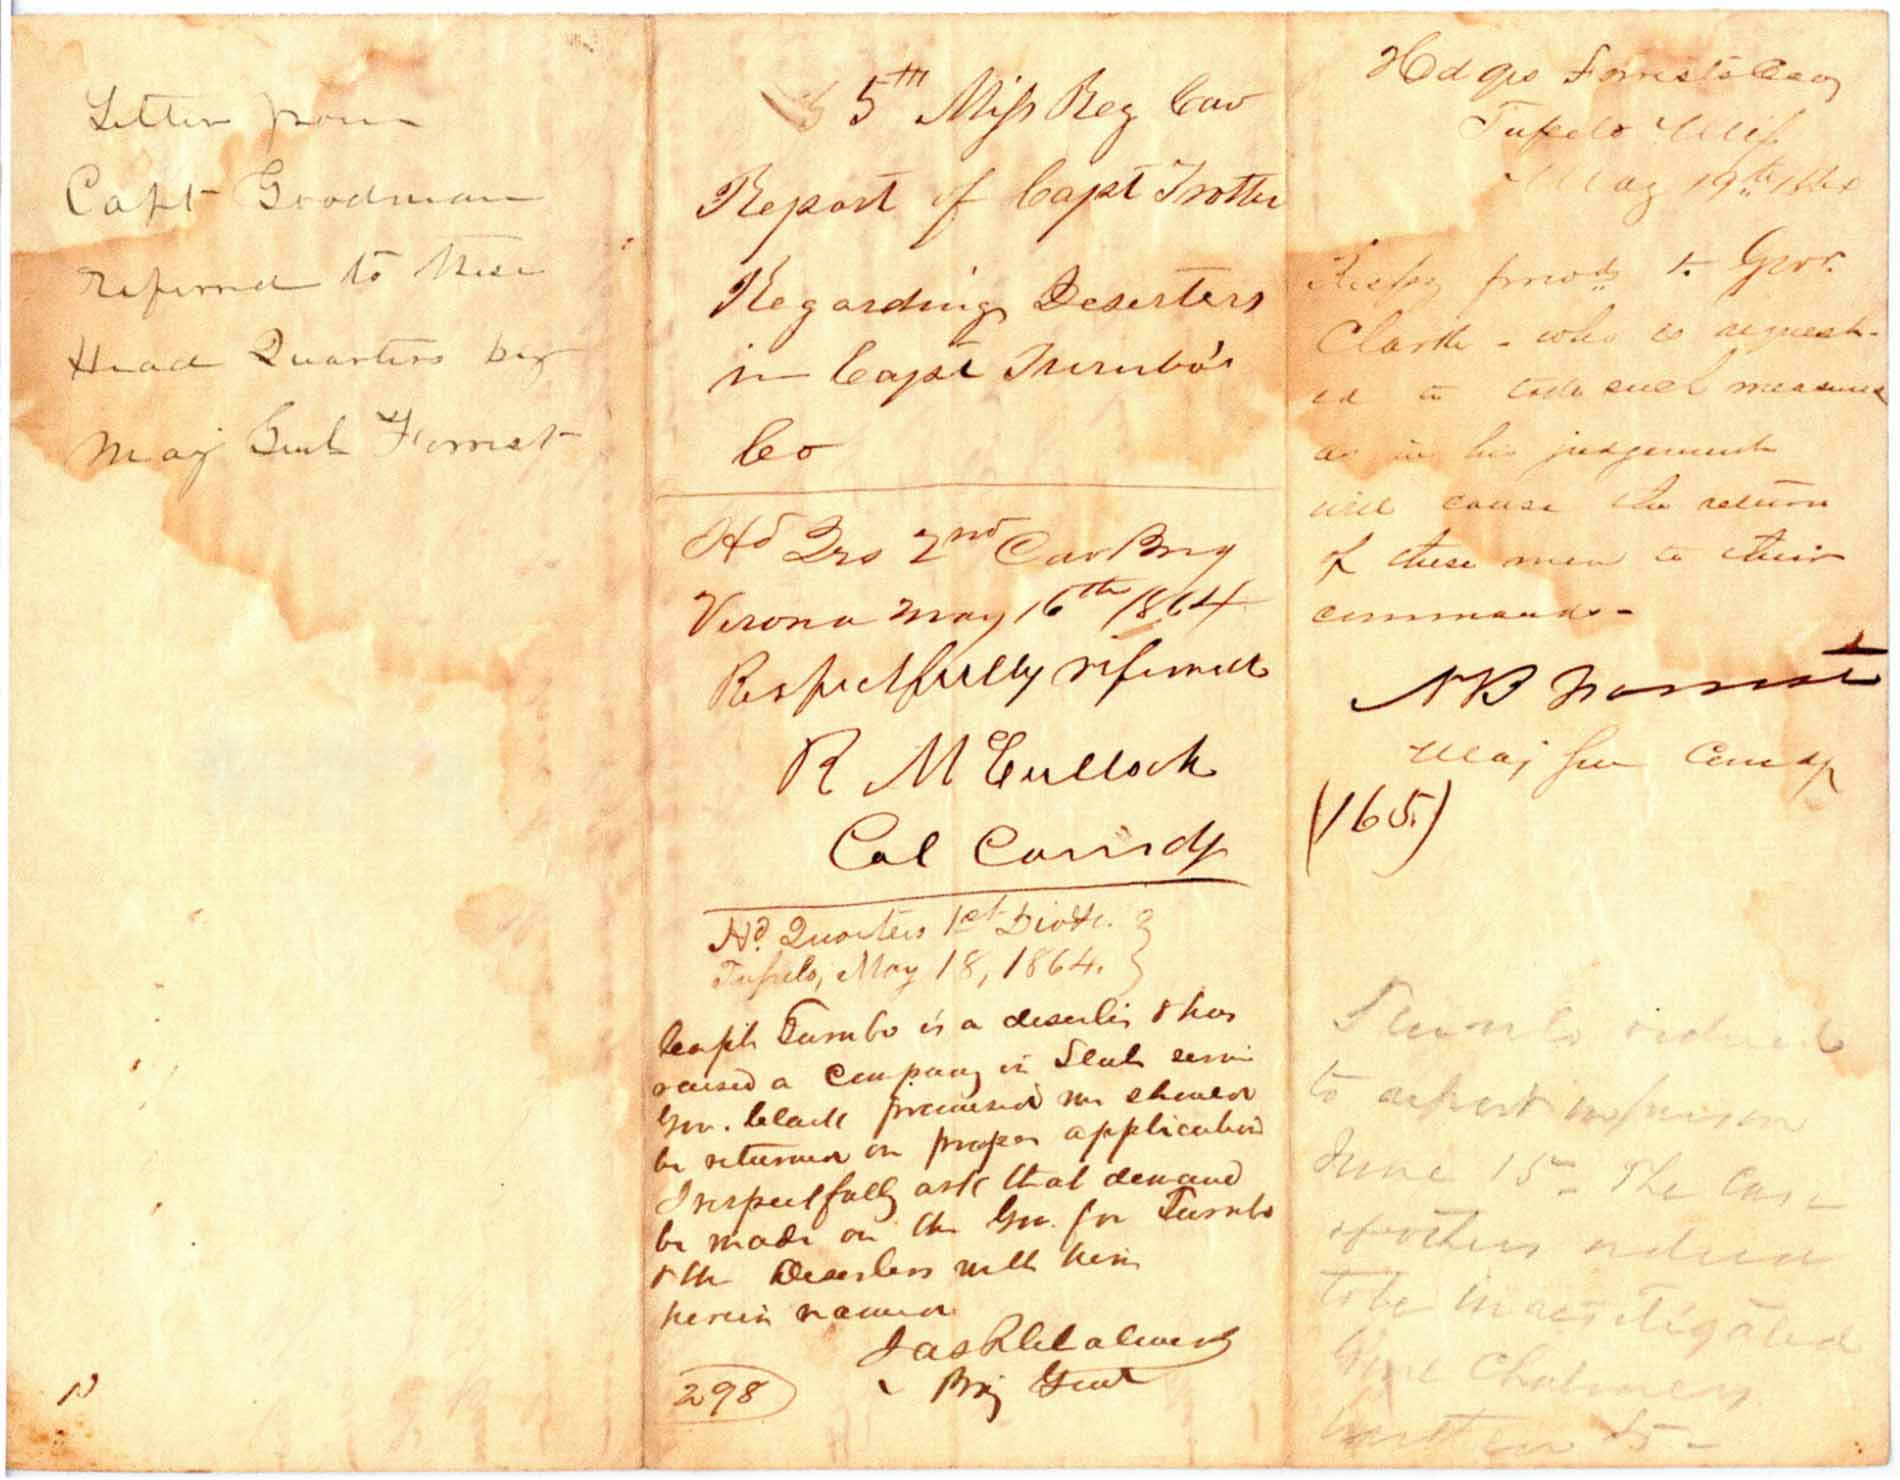 Letter from
Capt Goodman
referred to these
Head Quarters by
Maj Genl Forrest
5th Miss Reg Cav
Report of Capt Trotter
Regarding Deserters
in Capt Turnbo's
Co
Hd Qrs 2nd Cav Brig
Verona May 16th 1864
Respectfully referred
R McCulloch
Col Comdg
Hd. Quarters 1st Divn.
Tupelo, May 18, 1864.
Capt Turnbo is a deserter & has
raised a Company in State servi
Gov. Clark promised me should
be returned on proper application
I respectfully ask that demand
be made on the Gov. for Turnbo
& the Deserters with him
herein named
Jas R Chalmers
Brig Genl
298
Hdqrs Forrests Cav
Tupelo Miss
May 19th 1864
Respy forwd to Gov.
Clark - who is request-
ed to take such measures
as in his judgement
will cause the return
of these men to their
commands -
N B Forrest
Maj Gen Comdg
(165)
Turnbo ordered
to report in person
June 15 - The case
of others ordered
to be investigated
Genl Chalmers
written to -